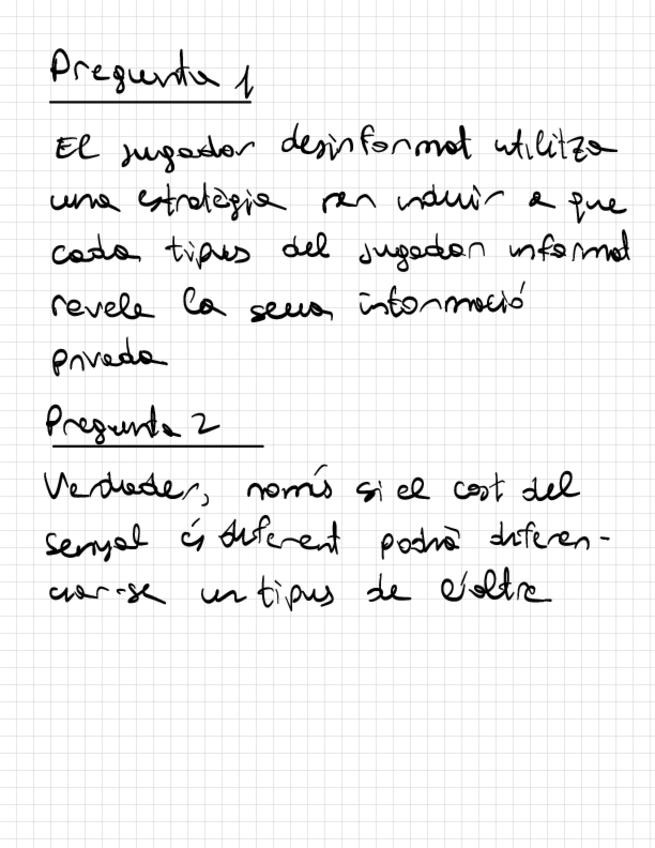 Pregunta 1
El jugador desinformat utilitza
una estratègia per induir a que
cada tipus del jugador informat
revele la seua informació
privada
Pregunta 2
Verdader, només si el cost del
senyal és diferent podrà diferen-
ciar-se un tipus de l'altre